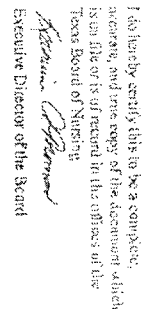 I do hereby certify this to be a complete,
accurate, and true copy of the document which
is on file or is of record in the offices of the
Texas Board of Nursing.
Executive Director of the Board